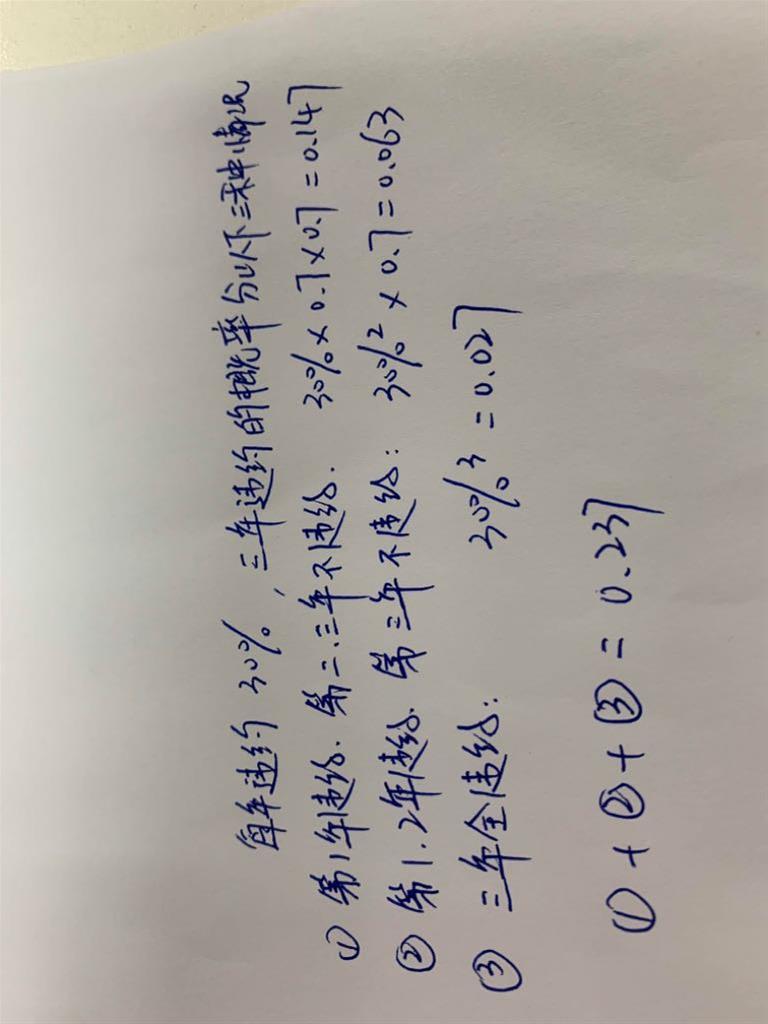 每年违约30%，三年违约的概率分以下三种情况
① 第1年违约、第二.三年不违约. 30%×0.7×0.7=0.147
② 第1.2年违约. 第三年不违约: 30%²×0.7=0.063
③ 三年全违约: 30%³=0.027
①+②+③=0.237